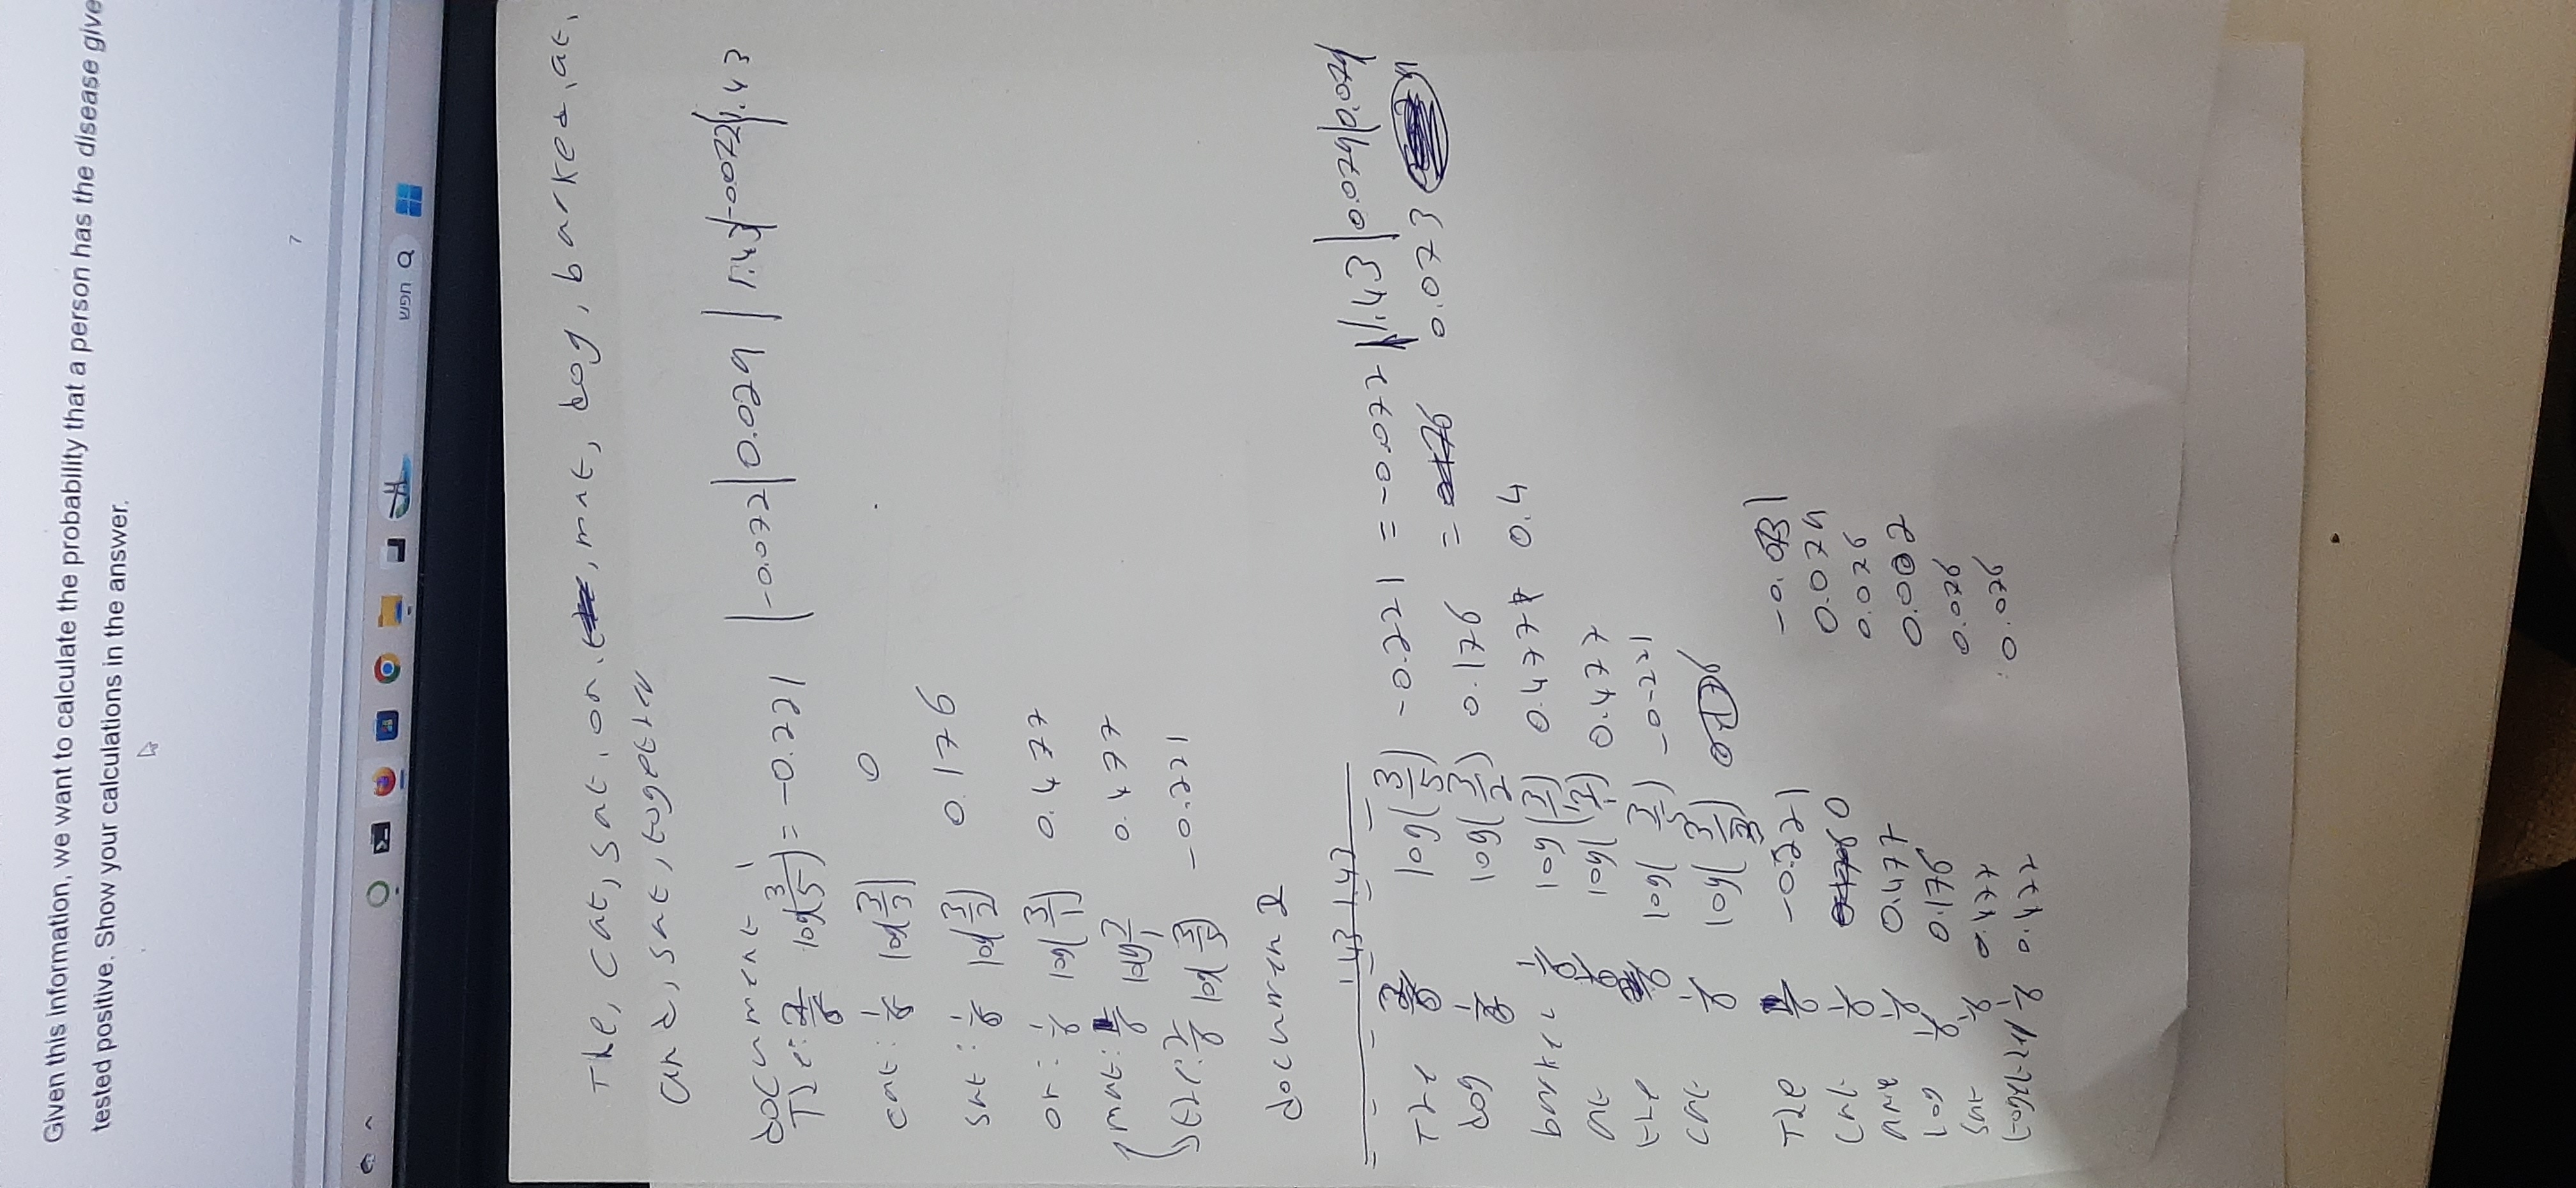 Given this information, we want to calculate the probability that a person has the disease give
tested positive. Show your calculations in the answer.
7
חפש
The, cat, sat, on, mat, dog, barked, at,
and, sat, together
document 1
The: 2/6 log(3/5) = -0.221 | -0.072 | 0.029 | 1.43 | -0.072 | 1.43
cat: 1/6 log(3/3) 0
sat: 1/6 log(3/2) 0.176
on: 1/6 log(3/1) 0.477
mat: 1/6 log 3/1 0.477
the: 2/6 log(3/5) -0.221
documen 2
1.43 1.43
The 2/6 log(3/5) -0.221 = -0.072 | 1.43 | 0.029 | 0.029
dog 1/6 log(3/2) 0.176 = 0.073
barked 1/6 log(3/1) 0.477 0.4
at log(3/1) 0.477
the log(3/5) -0.221
cat 1/6 log(3/3)
The 1/6 -0.221
cat 1/6 0 0.029
and 1/6 0.477 0.026
dog 1/6 0.176 0.002
sat 1/6 0.477 0.026
together 1/6 0.477 0.026